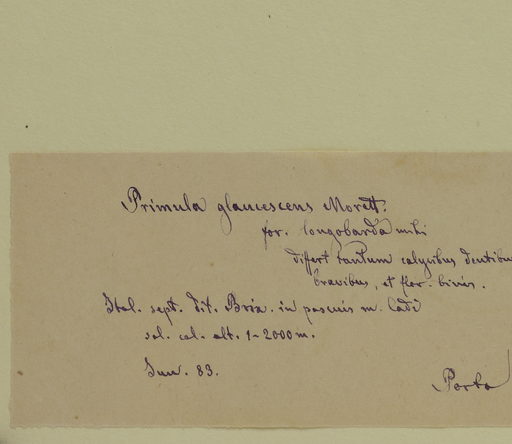 Primula glaucescens Morett.
for. longobarda mihi
differt tantum calycibus dentibus
brevibus, et flor. binis.
Ital. sept. dit. Brix. in pascuis m. Cadì
sol. cal. alt. 1-2000 m.
Jun. 83.
Porta